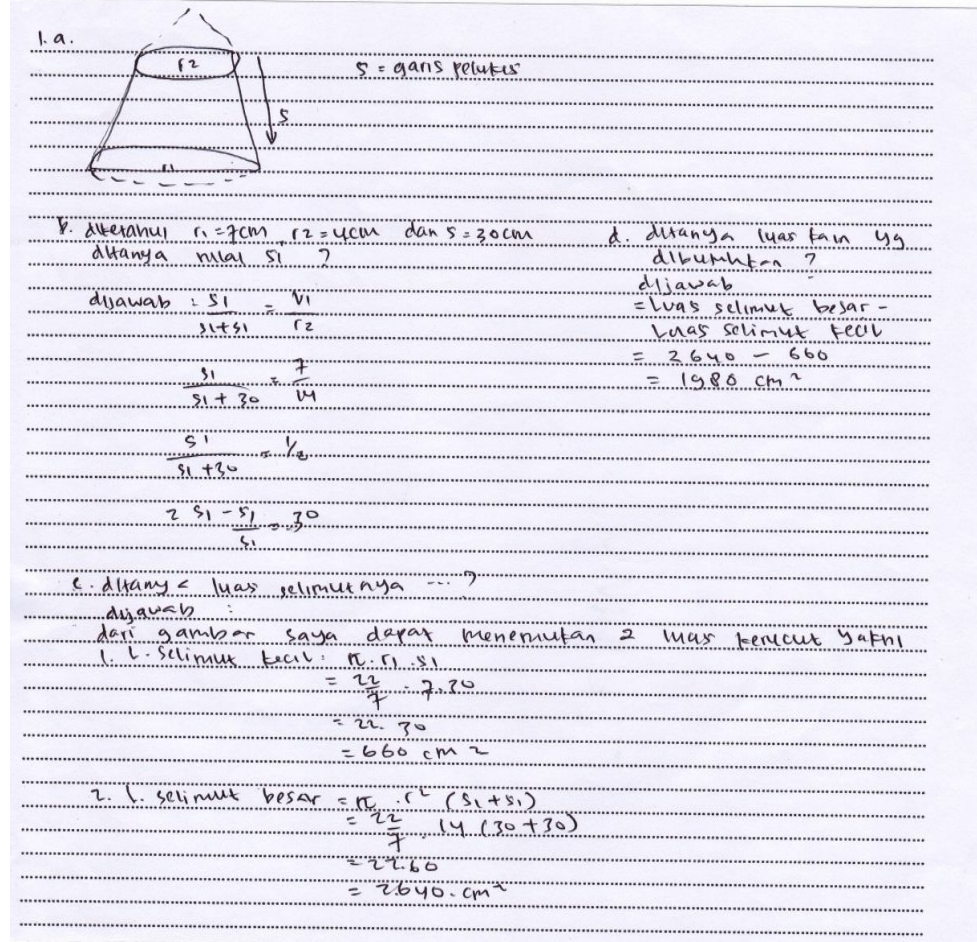 1. a.
r2
S = garis pelukis
S
r1
b. diketahui r1 = 7cm, r2 = 4cm dan S = 30cm
ditanya nilai S1 ?
dijawab : S1 / S1+S1 = r1 / r2
S1 / S1 + 30 = 7 / 14
S1 / S1 + 30 = 1/2
2 S1 - S1 / S1 = 30
c. ditanya luas selimutnya ... ?
dijawab :
dari gambar saya dapat menemukan 2 luas kerucut yakni
1. L. Selimut kecil : π . r1 . S1
= 22/7 . 7.30
= 22. 30
= 660 cm 2
2. L. selimut besar = π . r2 (S1 + S1)
= 22/7 . 14 (30 + 30)
= 22.60
= 2640. cm2
d. ditanya luas kain yg
dibutuhkan ?
dijawab
= Luas selimut besar -
Luas selimut kecil
= 2640 - 660
= 1980 cm2